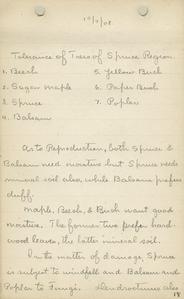 10/9/08
Tolerance of Trees of Spruce Region
1. Beech 5. Yellow Birch
2. Sugar Maple 6. Paper Birch
3. Spruce 7. Poplar
4. Balsam
As to Reproduction, both Spruce &
Balsam need moisture but Spruce needs
mineral soil also, while Balsam prefers
duff.
Maple, Beech, & Birch want good
moisture. The former two prefer hard-
wood leaves, the latter mineral soil.
In the matter of damage, Spruce
is subject to windfall and Balsam and
Poplar to Fungi. Dendroctonus also